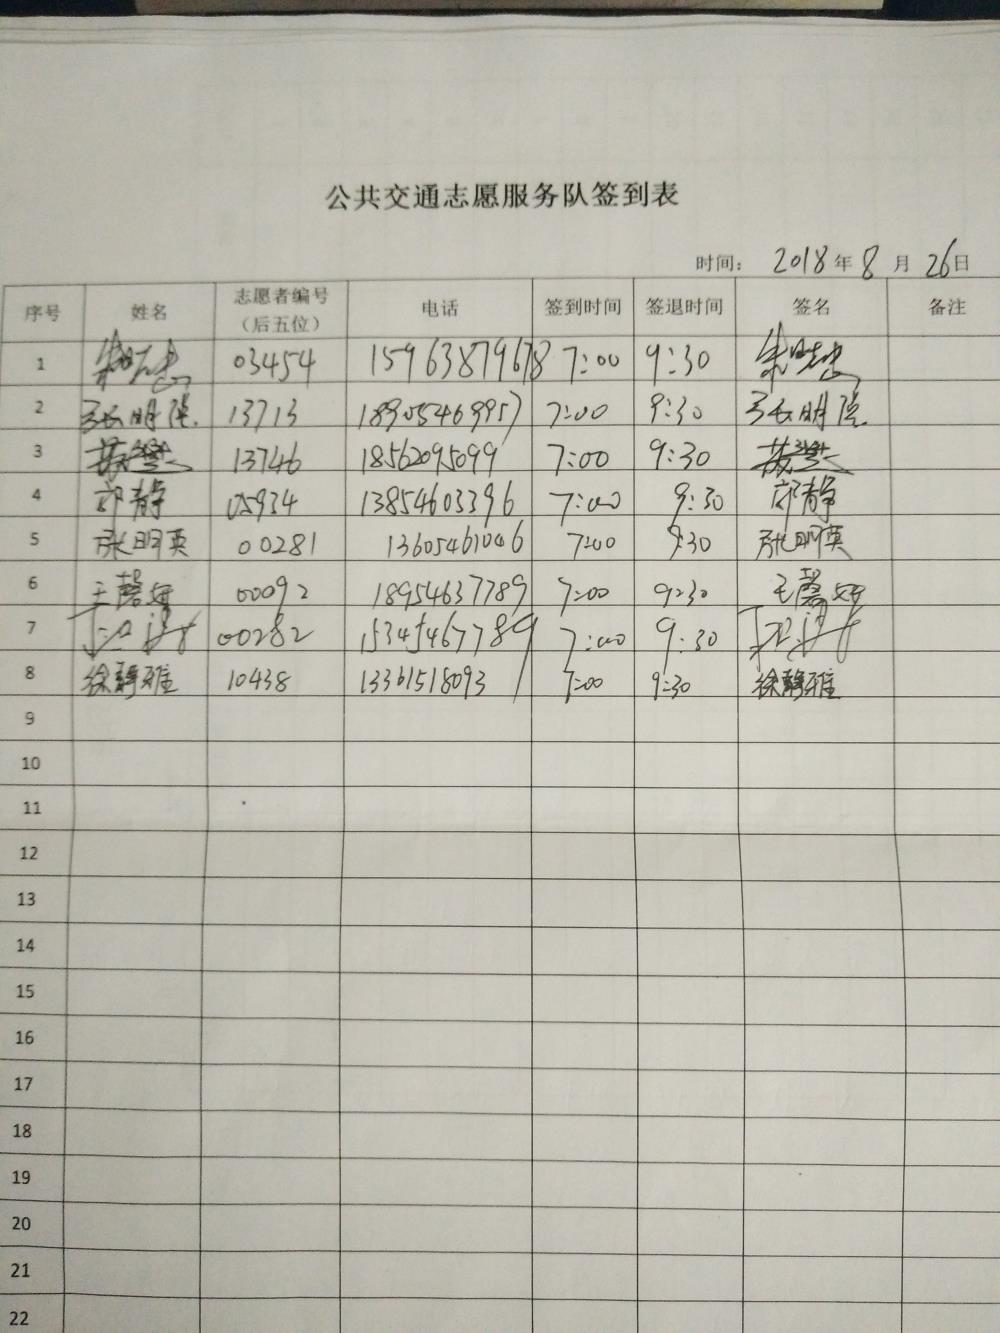 公共交通志愿服务队签到表
时间： 2018年8月26日
序号 姓名 志愿者编号（后五位） 电话 签到时间 签退时间 签名 备注
1 03454 15963879678 7:00 9:30
2 张明 13713 18905469957 7:00 9:30 张明
3 13746 18562095099 7:00 9:30
4 邱静 05934 13854603396 7:00 9:30 邱静
5 张明英 00281 13605461046 7:00 9:30 张明英
6 王馨 00092 18954637789 7:00 9:30 王馨
7 00282 15345467789 7:00 9:30
8 徐静雅 10438 13361518093 7:00 9:30 徐静雅
9
10
11
12
13
14
15
16
17
18
19
20
21
22